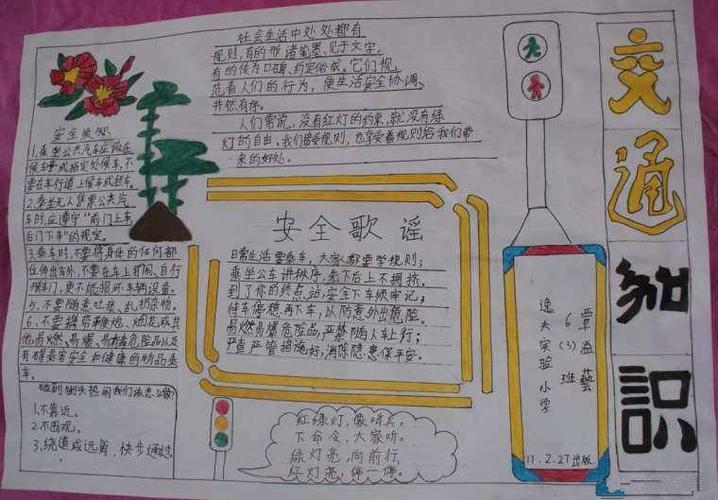 社会生活中处处都有
规则,有的形诸笔墨、见于文字,
有的传为口碑、约定俗成。它们规
范着人们的行为,使生活安全协调、
井然有序。
人们常说,没有红灯的约束,就没有绿
灯的自由。我们遵受规则,也享受着规则给我们带
来的好处。
安全须知
1.乘坐公共汽车应该在
候车亭或指定处候车,不
要在车行道上候车或赶车。
2.乘坐无人售票公共汽
车时,应遵守"前门上车
后门下车"的规定。
3.乘车时,不要将身体的任何部
位伸出窗外,不要在车上打闹、自行
开车门,更不能损坏车辆设备。
5.不要随意吐痰、乱扔杂物。
6.不要携带鞭炮、烟花或其
他易燃、易爆、易
有碍乘客安全和健康的物品乘
车。
碰到街头热闹我们该怎么做?
1.不靠近。
2.不围观。
3.绕道或远离,快步通过
安全歌谣
日常生活要乘车,大家都要学规则;
乘坐公车讲秩序,先下后上不拥挤,
到了你的终点站,安全下车须牢记;
待车停稳再下车,以防意外出危险。
易燃易爆危险品,严禁随人车上行;
严查严管措施好,消除隐患保平安。
红绿灯,像哨兵,
下命令,大家听。
绿灯亮,向前行,
红灯亮,停一停。
交通知识
逸夫实验小学
6(3)班
覃益艺
11.2.27出版